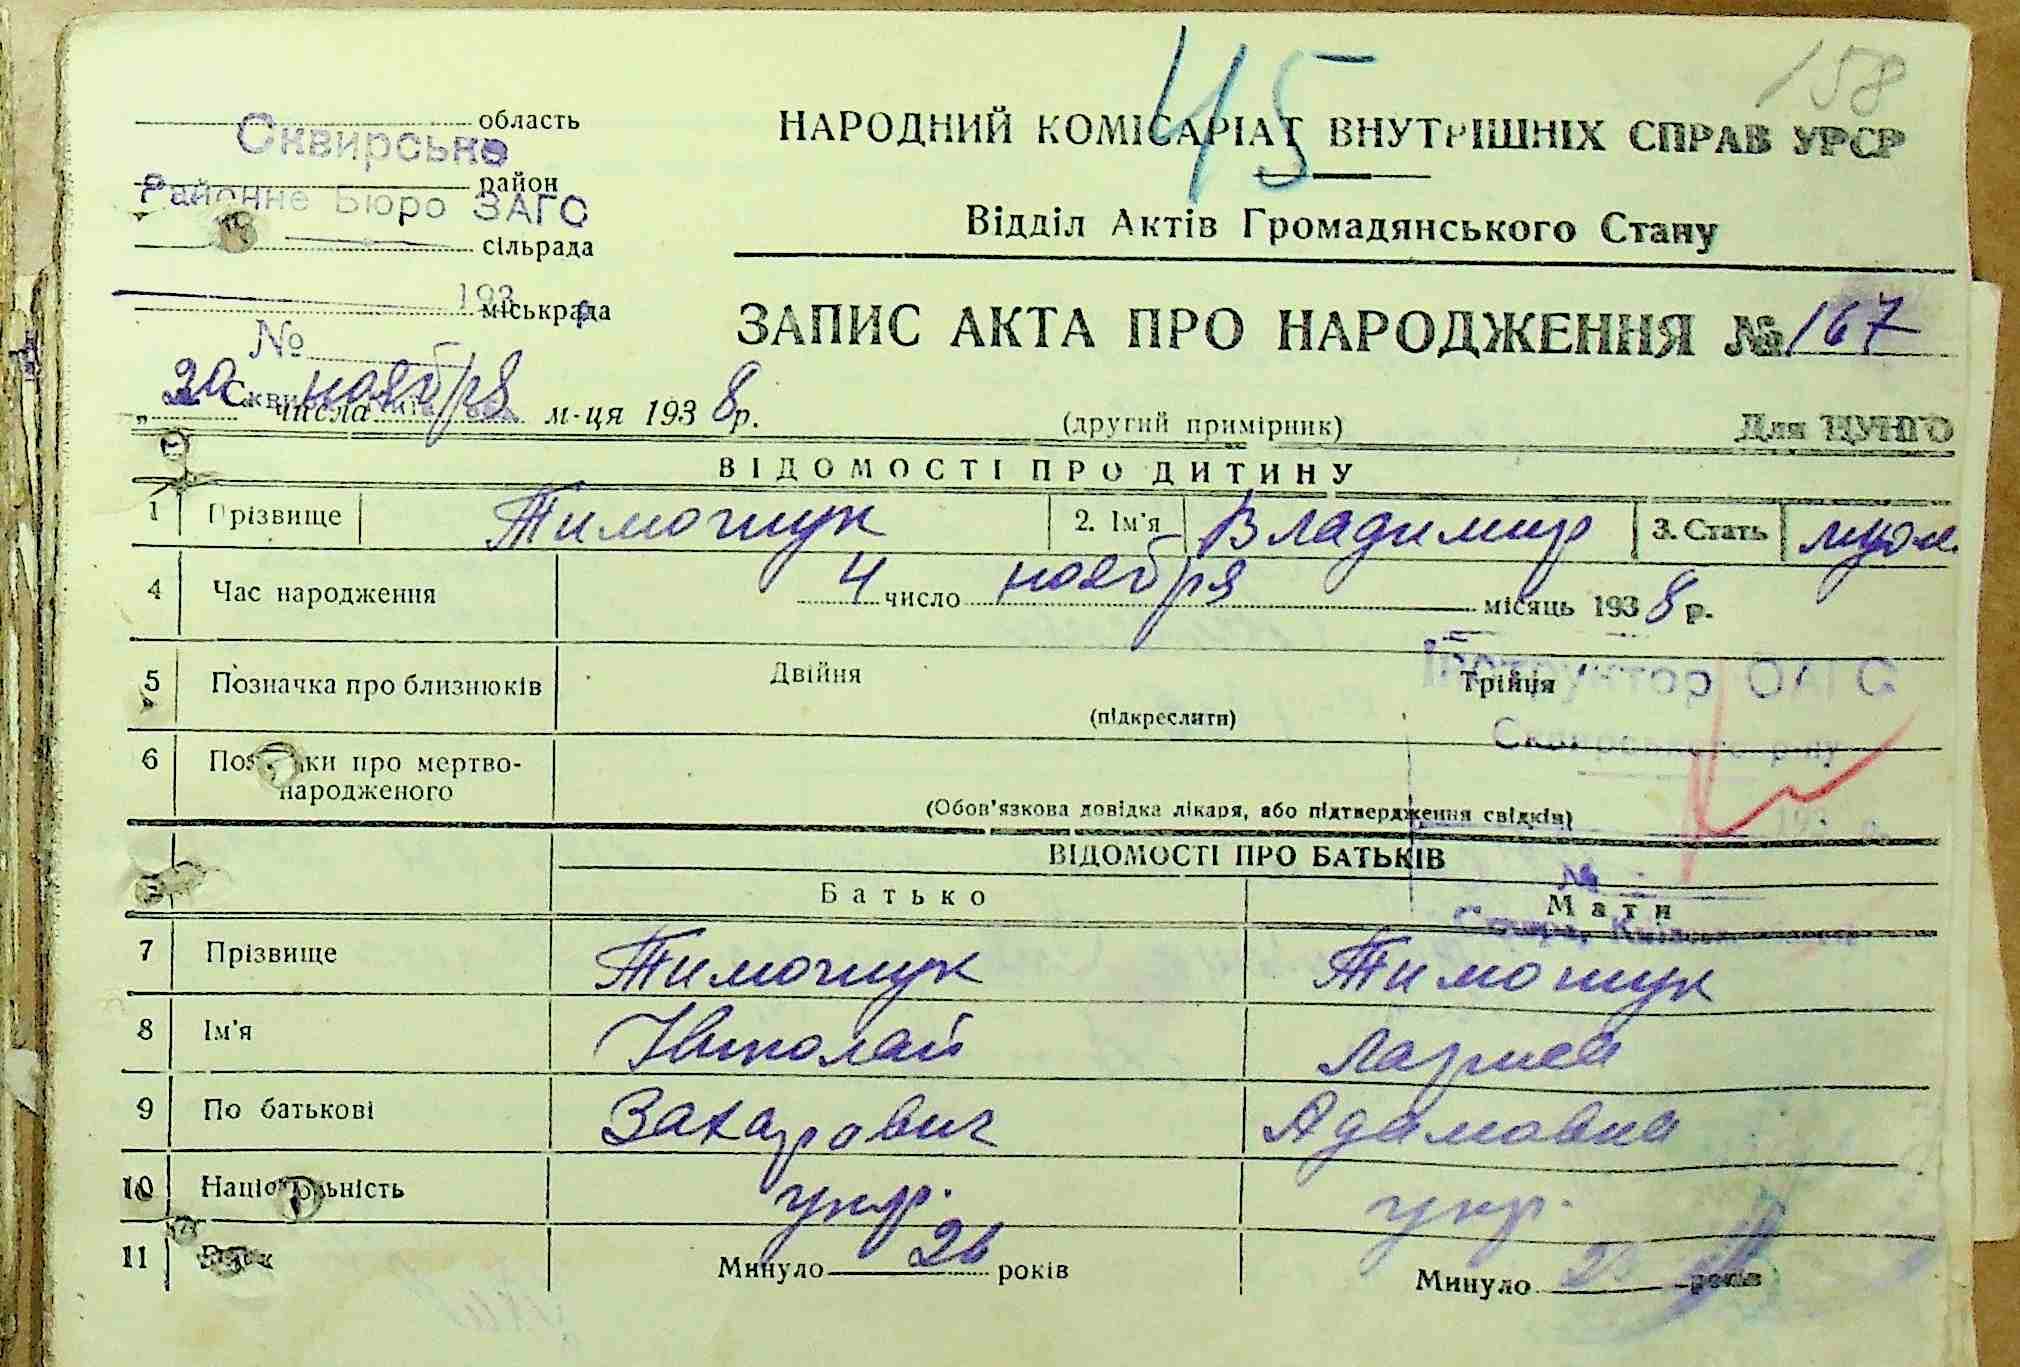 45
158
область
Сквирське
район
Районне Бюро ЗАГС
сільрада
193
міськрада
№
НАРОДНИЙ КОМІСАРІАТ ВНУТРІШНІХ СПРАВ УРСР
Відділ Актів Громадянського Стану
ЗАПИС АКТА ПРО НАРОДЖЕННЯ № 167
„20 числа ноября м-ця 1938р.
(другий примірник)
Для ЦУНГО
ВІДОМОСТІ ПРО ДИТИНУ
1 Прізвище Тимошук 2. Ім'я Владимир 3. Стать муж.
4 Час народження 4 число ноября місяць 1938 р.
Інструктор ОАГС
5 Позначка про близнюків Двійня Трійця
(підкреслити)
6 Позначки про мертво-
народженого
(Обов'язкова довідка лікаря, або підтвердження свідків)
193 р.
ВІДОМОСТІ ПРО БАТЬКІВ
№
Батько Мати
7 Прізвище Тимошук Тимошук
8 Ім'я Николай Лариса
9 По батькові Захарович Адамовна
10 Національність укр. укр.
11 Минуло 26 років Минуло років